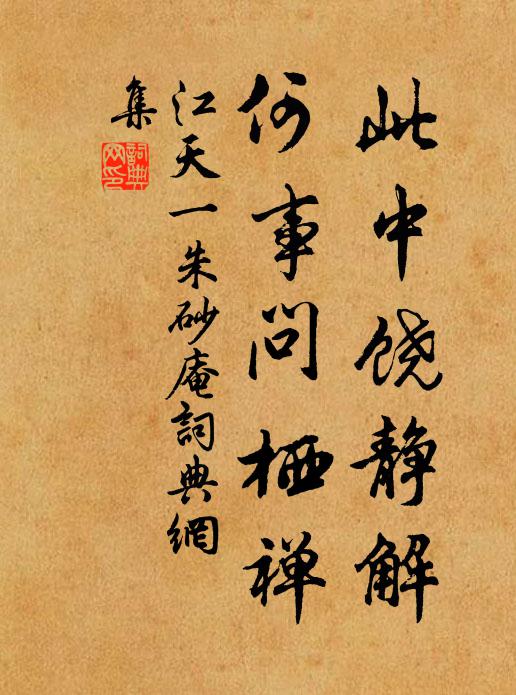 此中饶静解
何事问栖禅
江天一朱砂庵詞典網
集
詞典網印